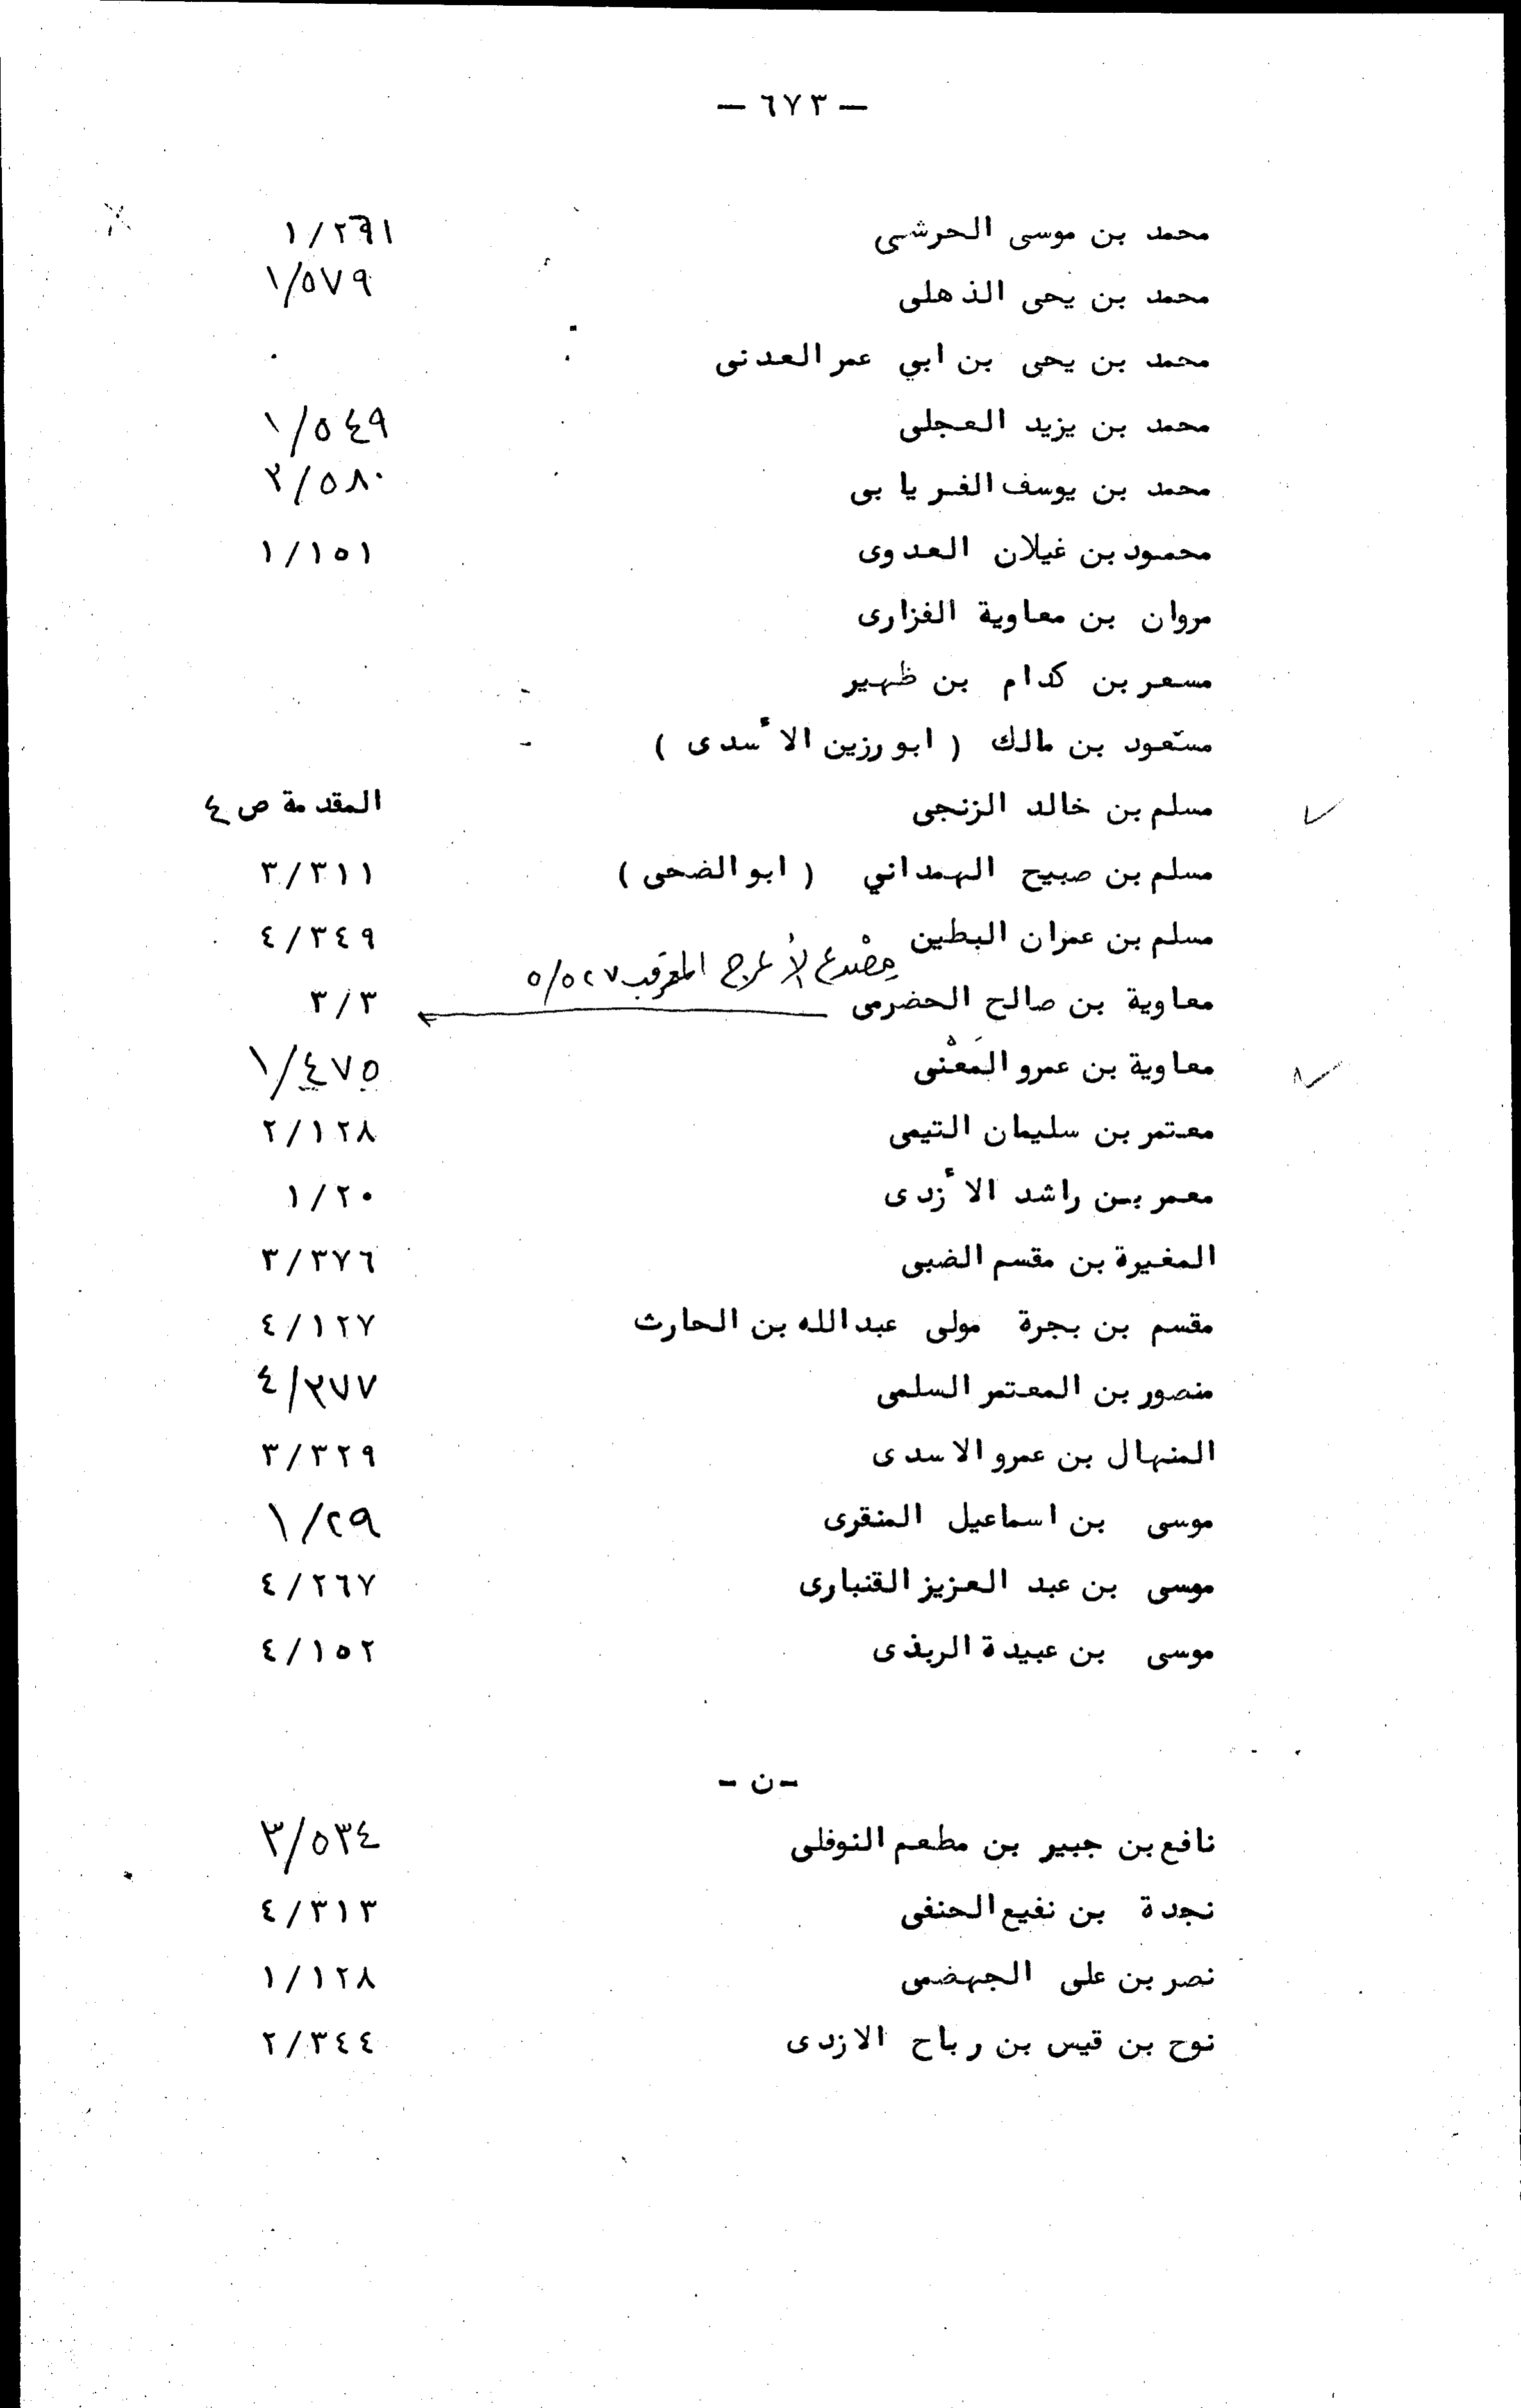 — ٦٧٣ —
محمد بن موسى الحرشي ١/٢٦١
محمد بن يحى الذهلى ١/٥٧٩
محمد بن يحى بن ابي عمر العدنى
محمد بن يزيد العجلى ١/٥٤٩
محمد بن يوسف الفريابى ٢/٥٨٠
محمود بن غيلان العدوى ١/١٥١
مروان بن معاوية الفزارى
مسعر بن كدام بن ظهير
مسعود بن مالك ( ابو رزين الأسدى )
مسلم بن خالد الزنجى المقدمة ص ٤
مسلم بن صبيح الهمداني ( ابو الضحى ) ٣/٣١١
مسلم بن عمران البطين ٤/٣٤٩
مِصْدع الأعرج المعرقب ٥/٥٢٧
معاوية بن صالح الحضرمى ٣/٣
معاوية بن عمرو المَعْنى ١/٤٧٥
معتمر بن سليمان التيمى ٢/١٢٨
معمر بن راشد الأزدى ١/٢٠
المغيرة بن مقسم الضبى ٣/٣٧٦
مقسم بن بجرة مولى عبدالله بن الحارث ٤/١٢٧
منصور بن المعتمر السلمى ٤/٣٧٧
المنهال بن عمرو الاسدى ٣/٣٢٩
موسى بن اسماعيل المنقرى ١/٢٩
موسى بن عبد العزيز القنبارى ٤/٢٦٧
موسى بن عبيدة الربذى ٤/١٥٢
- ن -
نافع بن جبير بن مطعم النوفلى ٣/٥٣٤
نجدة بن نفيع الحنفى ٤/٣١٣
نصر بن على الجهضمى ١/١٢٨
نوح بن قيس بن رباح الازدى ٢/٣٤٤